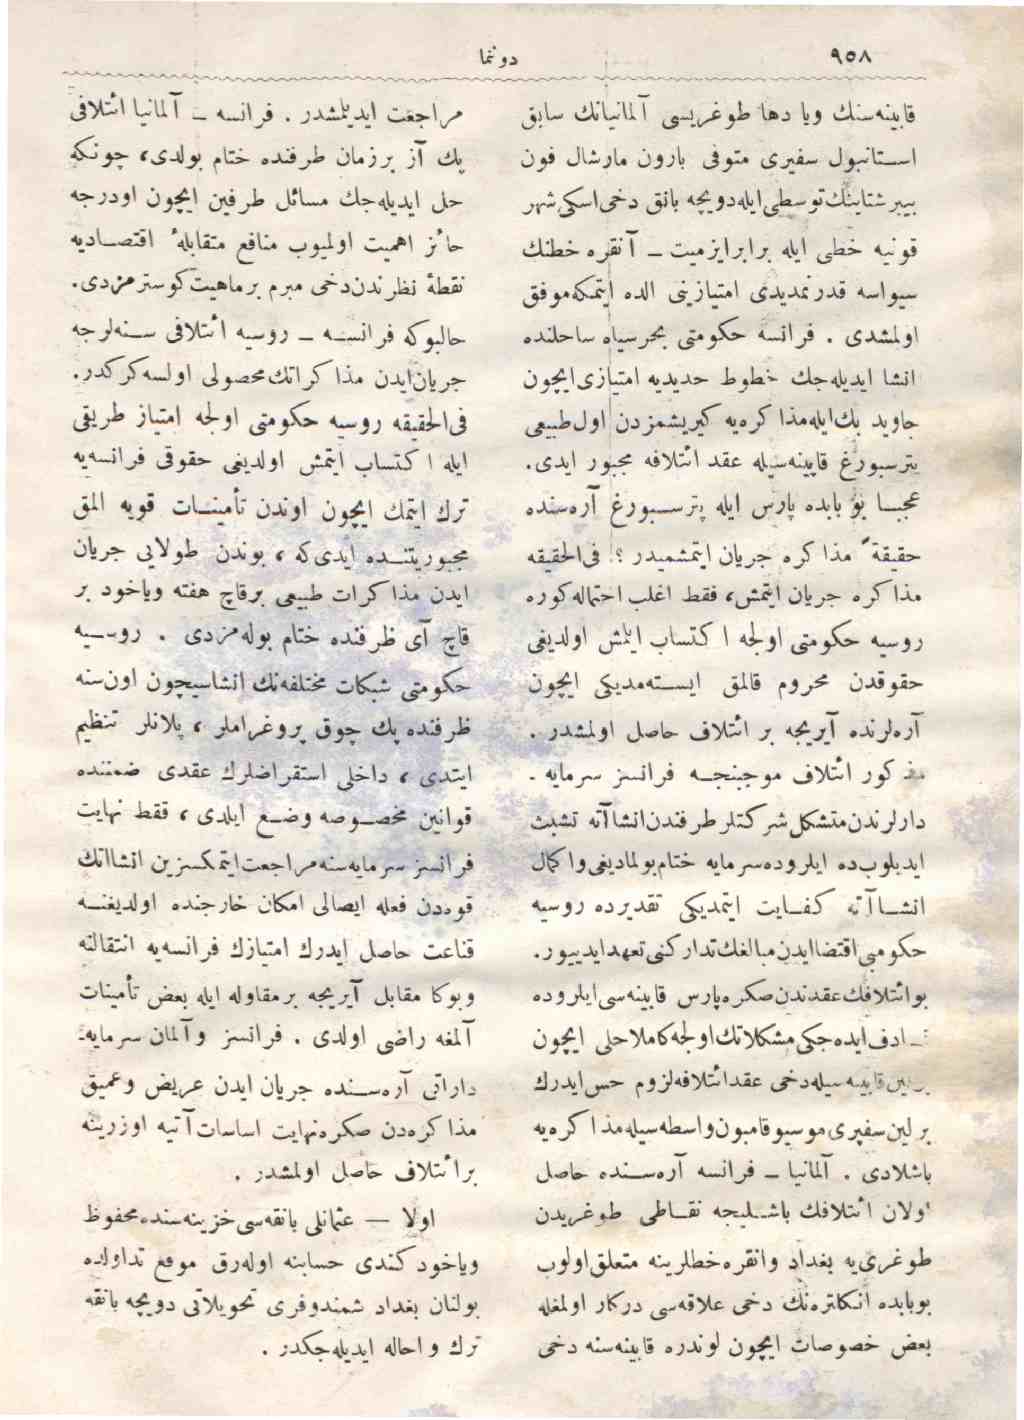 ٩٥٨
دوننما
قابینه‌سنك ویا دها طوغریسی آلمانیانك سابق
استانبول سفیری متوفی بارون مارشال فون
بیبر شتاینك توسطی ایله دویچه بانق دخی اسکی شهر
قونیه خطی ایله برابر ایزمیت ــ آنقره خطنك
سیواسه قدر تمدیدی امتیازینی الده ایتمکه موفق
اولمشدی . فرانسه حکومتی بحر سیاه ساحلنده
انشا ایدیله‌جك خطوط حدیدیه امتیازی ایچون
جاوید بك ایله مذاکره‌یه کیریشمزدن اول طبیعی
پترسبورغ قابینه‌سیله عقد ائتلافه مجبور ایدی.
عجبا بو بابده پارس ایله پترسبورغ آره‌سنده
حقیقةً مذاکره جریان ایتمشمیدر ؟ فی‌الحقیقه
مذاکره جریان ایتمش، فقط اغلب احتماله کوره
روسیه حکومتی اولجه اکتساب ایلمش اولدیغی
حقوقدن محروم قالمق ایسته‌مدیکی ایچون
آره‌لرنده آیریجه بر ائتلاف حاصل اولمشدر .
مذکور ائتلاف موجبنجه فرانسز سرمایه ـ
دارلرندن متشکل شرکتلر طرفندن انشاآته تشبث
ایدیلوب‌ده ایلروده سرمایه ختام بولمادیغی واکمال
انشاآته کفایت ایتمدیکی تقدیرده روسیه
حکومتی اقتضا ایدن مبالغك تدارکنی تعهد ایدییور.
بو ائتلافك عقدندن صکره پارس قابینه‌سی ایلروده
تصادف ایده‌جکی مشکلاتك اولجه کاملا حلی ایچون
برلین قابینه‌سیله دخی عقد ائتلافه لزوم حس ایدرك
برلین سفیری موسیو قامبون واسطه‌سیله مذاکره‌یه
باشلادی . آلمانیا ــ فرانسه آره‌سنده حاصل
اولان ائتلافك باشلیجه نقاطی طوغریدن
طوغری‌یه بغداد وانقره خطلرینه متعلق اولوب
بوبابده انکلتره‌نك دخی علاقه‌سی درکار اولمغله
بعض خصوصات ایچون لوندره قابینه‌سنه دخی
مراجعت ایدیلمشدر . فرانسه ــ آلمانیا ائتلافی
پك آز بر زمان ظرفنده ختام بولدی، چونکه
حل ایدیله‌جك مسائل طرفین ایچون اودرجه
حائز اهمیت اولمیوب منافع متقابلهٔ اقتصادیه
نقطهٔ نظرندن دخی مبرم بر ماهیت کوسترمزدی.
حالبوکه فرانسه ــ روسیه ائتلافی سنه‌لرجه
جریان ایدن مذاکراتك محصولی اولسه کرکدر.
فی‌الحقیقه روسیه حکومتی اولجه امتیاز طریقی
ایله اکتساب ایتمش اولدیغی حقوقی فرانسه‌یه
ترك ایتمك ایچون اوندن تأمینات قویه المق
مجبوریتنده ایدی‌که ، بوندن طولایی جریان
ایدن مذاکرات طبیعی برقاچ هفته ویاخود بر
قاچ آی ظرفنده ختام بوله‌مزدی . روسیه
حکومتی شبکات مختلفه‌نك انشاسیچون اون‌سنه
ظرفنده پك چوق پروغراملر ، پلانلر تنظیم
ایتدی ، داخلی استقراضلرك عقدی ضمننده
قوانین مخصوصه وضع ایلدی ، فقط نهایت
فرانسز سرمایه‌سنه مراجعت ایتمکسزین انشااتك
قوه‌دن فعله ایصالی امکان خارجنده اولدیغنه
قناعت حاصل ایدرك امتیازك فرانسه‌یه انتقالنه
وبوکا مقابل آیریجه بر مقاوله ایله بعض تأمینات
آلمغه راضی اولدی . فرانسز وآلمان سرمایه‌ـ
دارانی آره‌سنده جریان ایدن عریض وعمیق
مذاکره‌دن صکره نهایت اساسات آتیه اوزرینه
بر ائتلاف حاصل اولمشدر .
اولا — عثمانلی بانقه‌سی خزینه‌سنده محفوظ
ویاخود کندی حسابنه اوله‌رق موقع تداولده
بولنان بغداد شمندوفری تحویلاتی دویچه بانقه
ترك واحاله ایدیله‌جکدر .